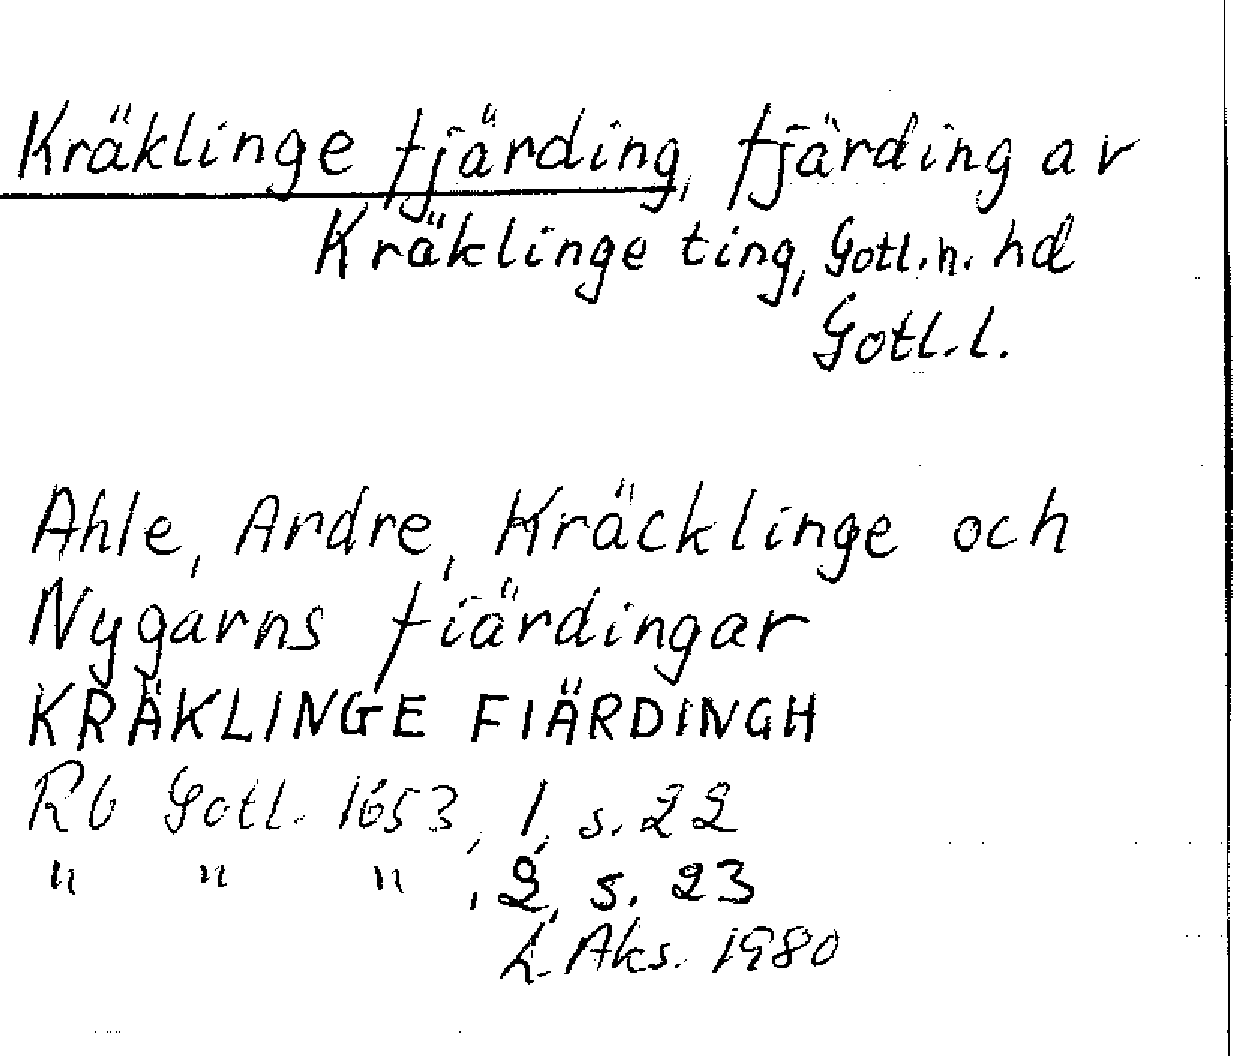 Kräklinge fjärding, fjärding av
Kräklinge ting, Gotl. n. hd
Gotl. l.
Ahle, Ardre, Kräcklinge och
Nygarns fiärdingar
KRÄKLINGE FIÄRDINGH
Rb Gotl. 1653, 1, s. 22
" " " , 2, s. 23
L. Aks. 1980